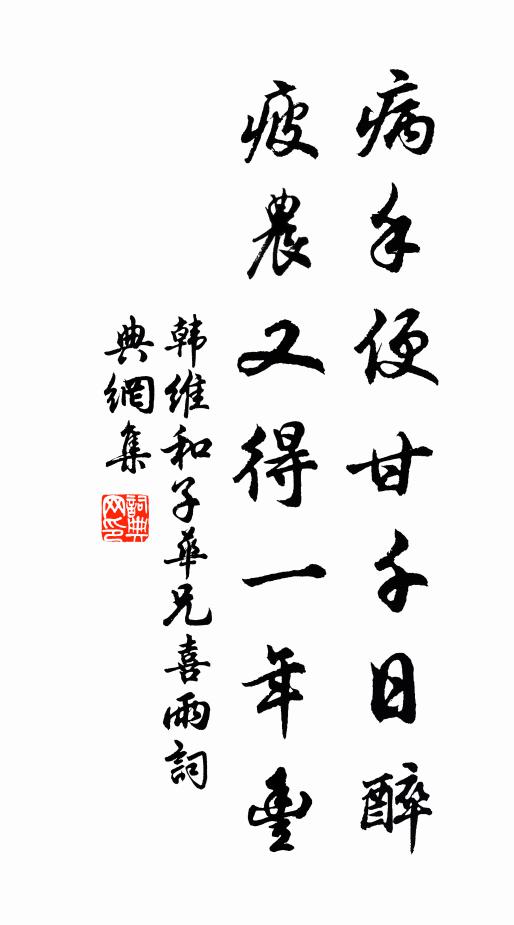 病手便甘千日醉
疲農又得一年豐
韩維和子華兄喜雨詞
典網集
詞典
网印